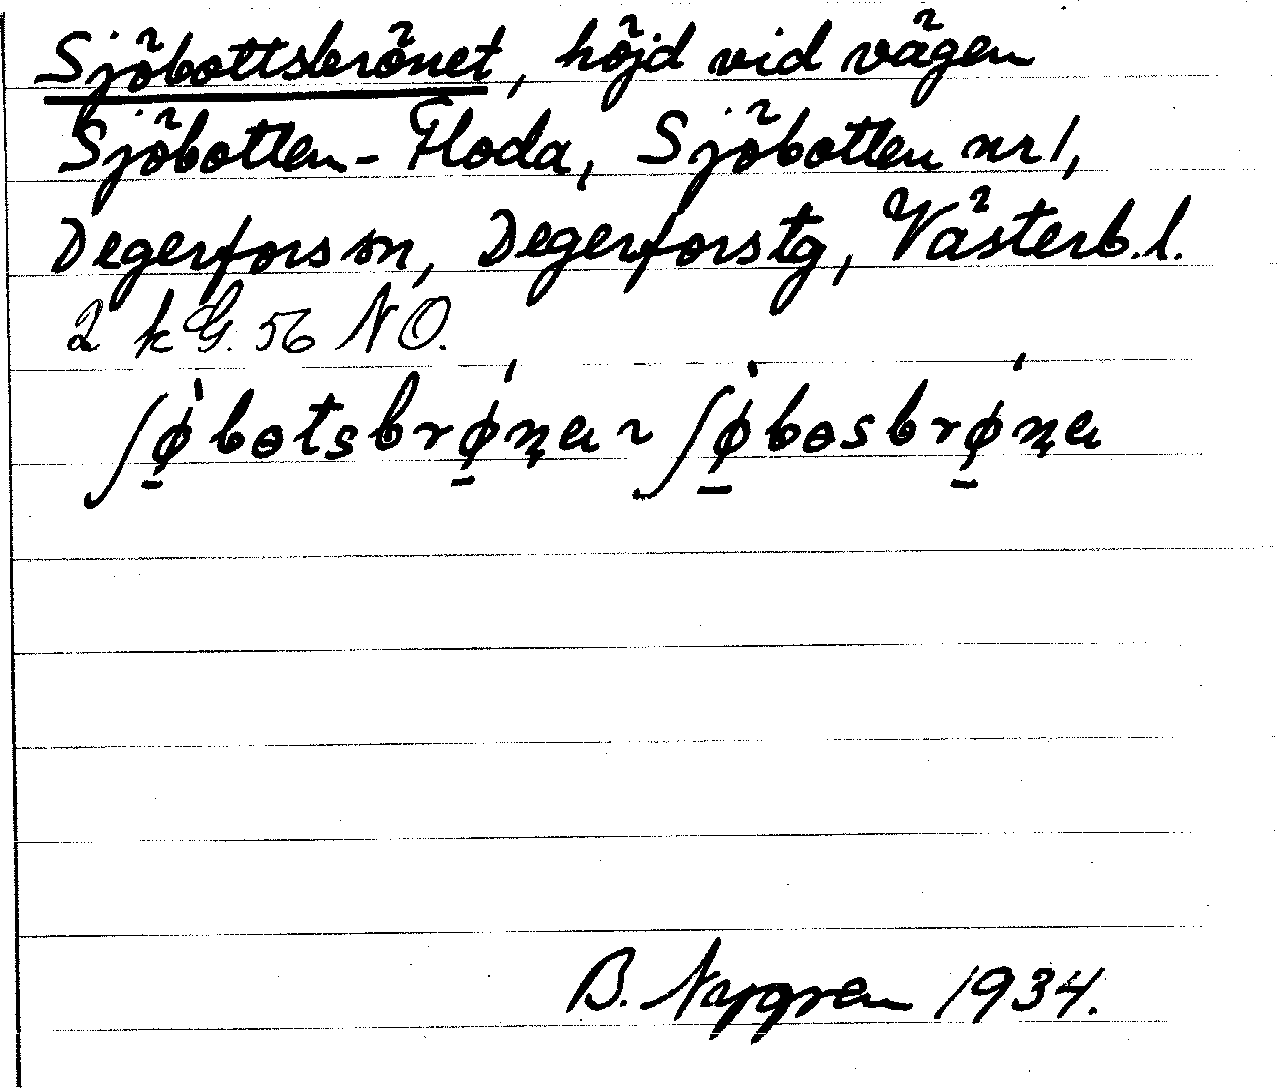 Sjöbottsbrönet, höjd vid vägen
Sjöbotten - Floda, Sjöbotten nr 1,
Degerfors sn, Degerfors tg, Västerb. l.
2 k G. 56 NO.
ʃø̠̀bɵtsbrǿ̠ṇa ~ ʃø̠̀bɵsbrǿ̠ṇa
B. Nygren 1934.